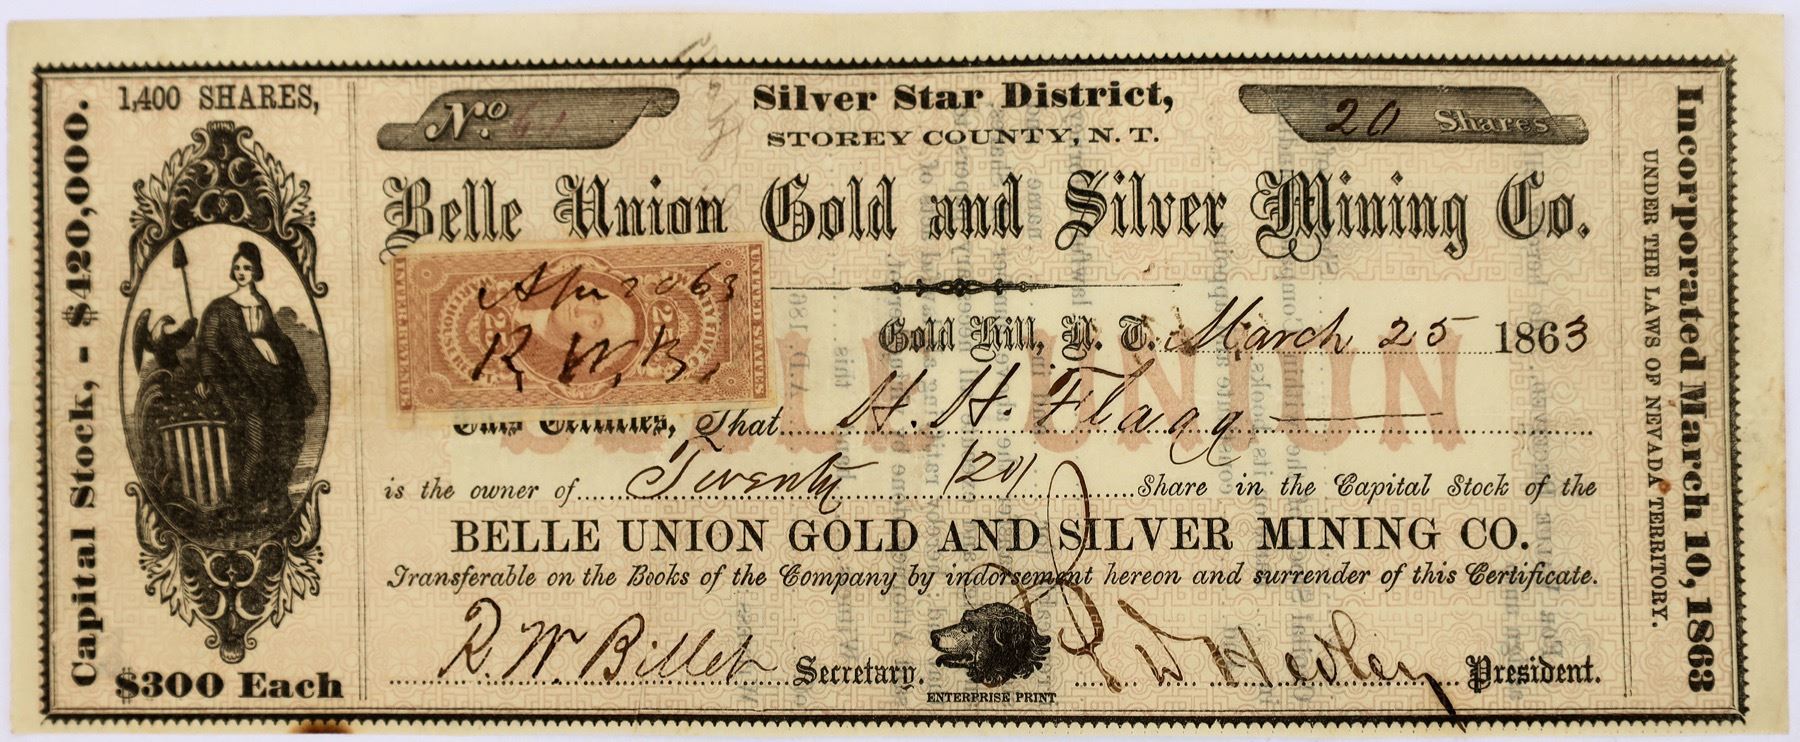 1,400 SHARES,
Capital Stock, - $420,000.
$300 Each
No. 61
Silver Star District,
STOREY COUNTY, N. T.
20 Shares
Belle Union Gold and Silver Mining Co.
UNITED STATES
INTER. REVENUE
25
25
Apr 20 63
R. W. B.
Gold Hill, N. T. March 25 1863
BELLE UNION
This Certifies, That H. H. Flagg
is the owner of Twenty (20) Share in the Capital Stock of the
BELLE UNION GOLD AND SILVER MINING CO.
Transferable on the Books of the Company by indorsement hereon and surrender of this Certificate.
R. W. Billet Secretary.
Hedley President.
ENTERPRISE PRINT
Incorporated March 10, 1863
UNDER THE LAWS OF NEVADA TERRITORY.